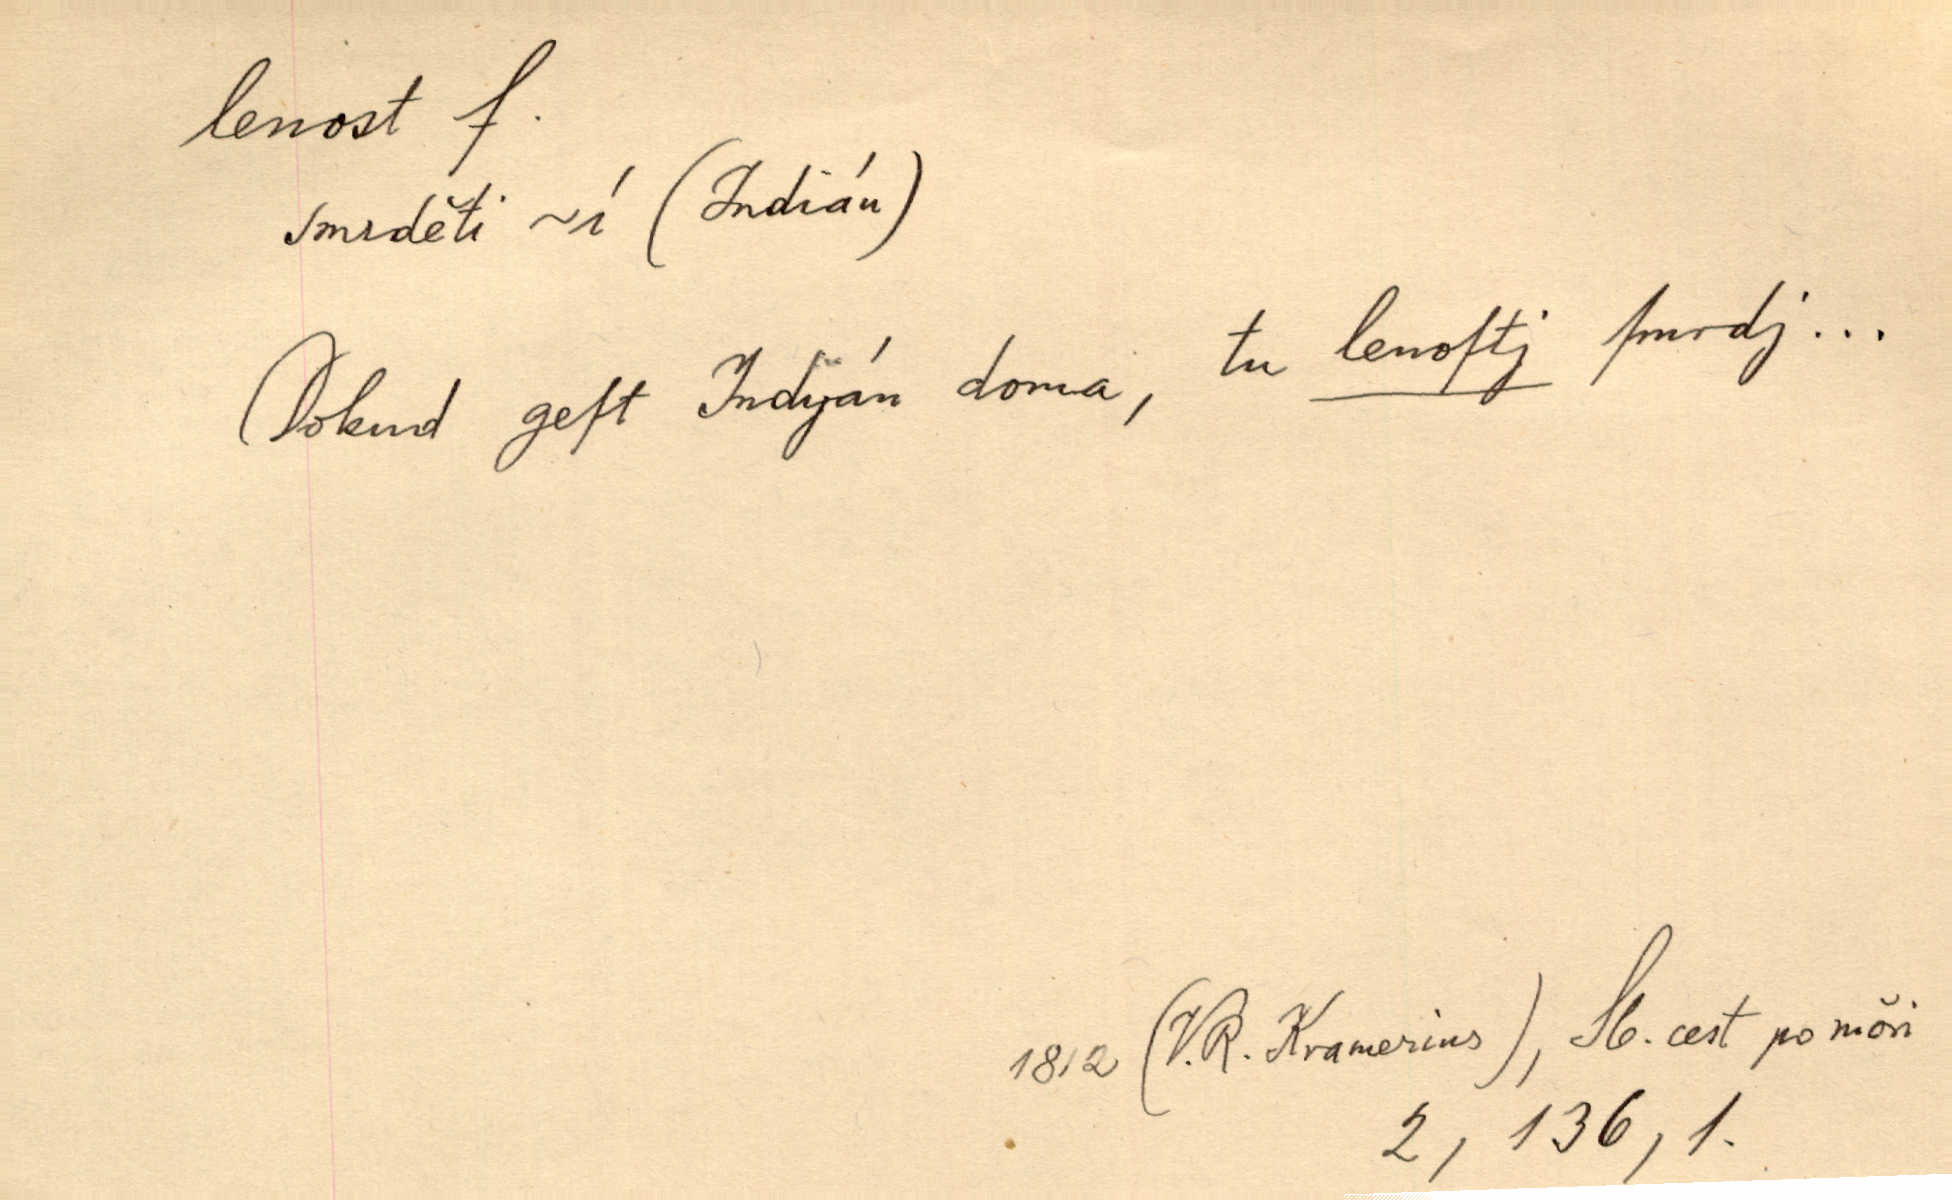 lenost f.
smrděti ~í (Indián)
Dokud geſt Indyán doma, tu lenoſtj ſmrdj...
1812 (V.R. Kramerius), Sb. cest po moři
2, 136, 1.